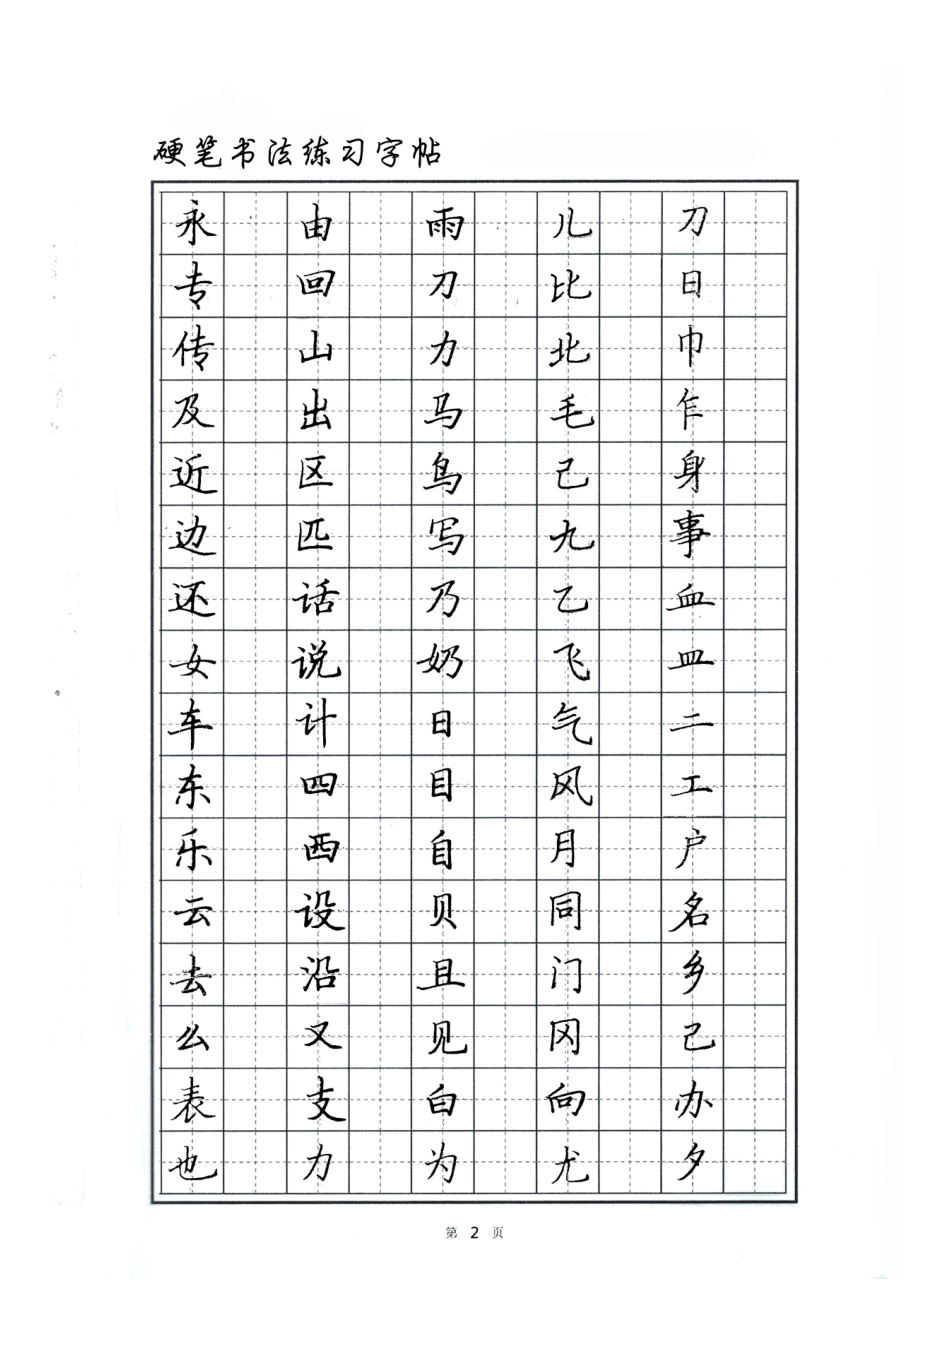 硬笔书法练习字帖
永 由 雨 儿 刀
专 回 刀 比 日
传 山 力 北 巾
及 出 马 毛 乍
近 区 鸟 己 身
边 匹 写 九 事
还 话 乃 乙 血
女 说 奶 飞 皿
车 计 日 气 二
东 四 目 风 工
乐 西 自 月 户
云 设 贝 同 名
去 沿 且 门 乡
么 又 见 冈 己
表 支 白 向 办
也 力 为 尤 夕
第 2 页